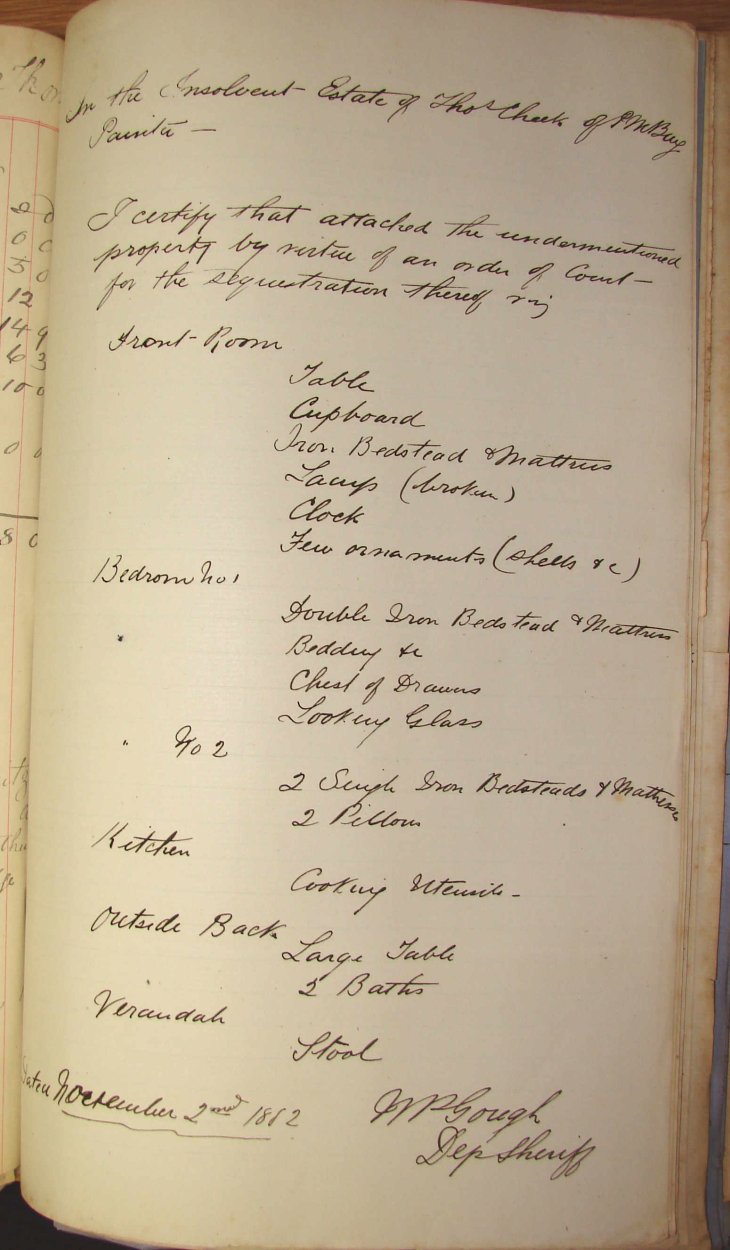 In the Insolvent Estate of Thos Cheek of PMBurg
Painter —
I certify that attached the undermentioned
property by virtue of an order of Court —
for the sequestration thereof viz
Front Room
Table
Cupboard
Iron Bedstead & Mattress
Lamp (broken)
Clock
Few ornaments (shells &c)
Bedroom No 1
Double Iron Bedstead & Mattress
Bedding &c
Chest of Drawers
Looking Glass
" No 2
2 Single Iron Bedsteads & Mattresses
2 Pillows
Kitchen
Cooking Utensils -
Outside Back
Large Table
2 Baths
Verandah
Stool
Dated November 2nd 1882
WPGough
Dep Sheriff
2 0
0 0
5 0
12
14 9
6 3
10 0
0 0
8 0